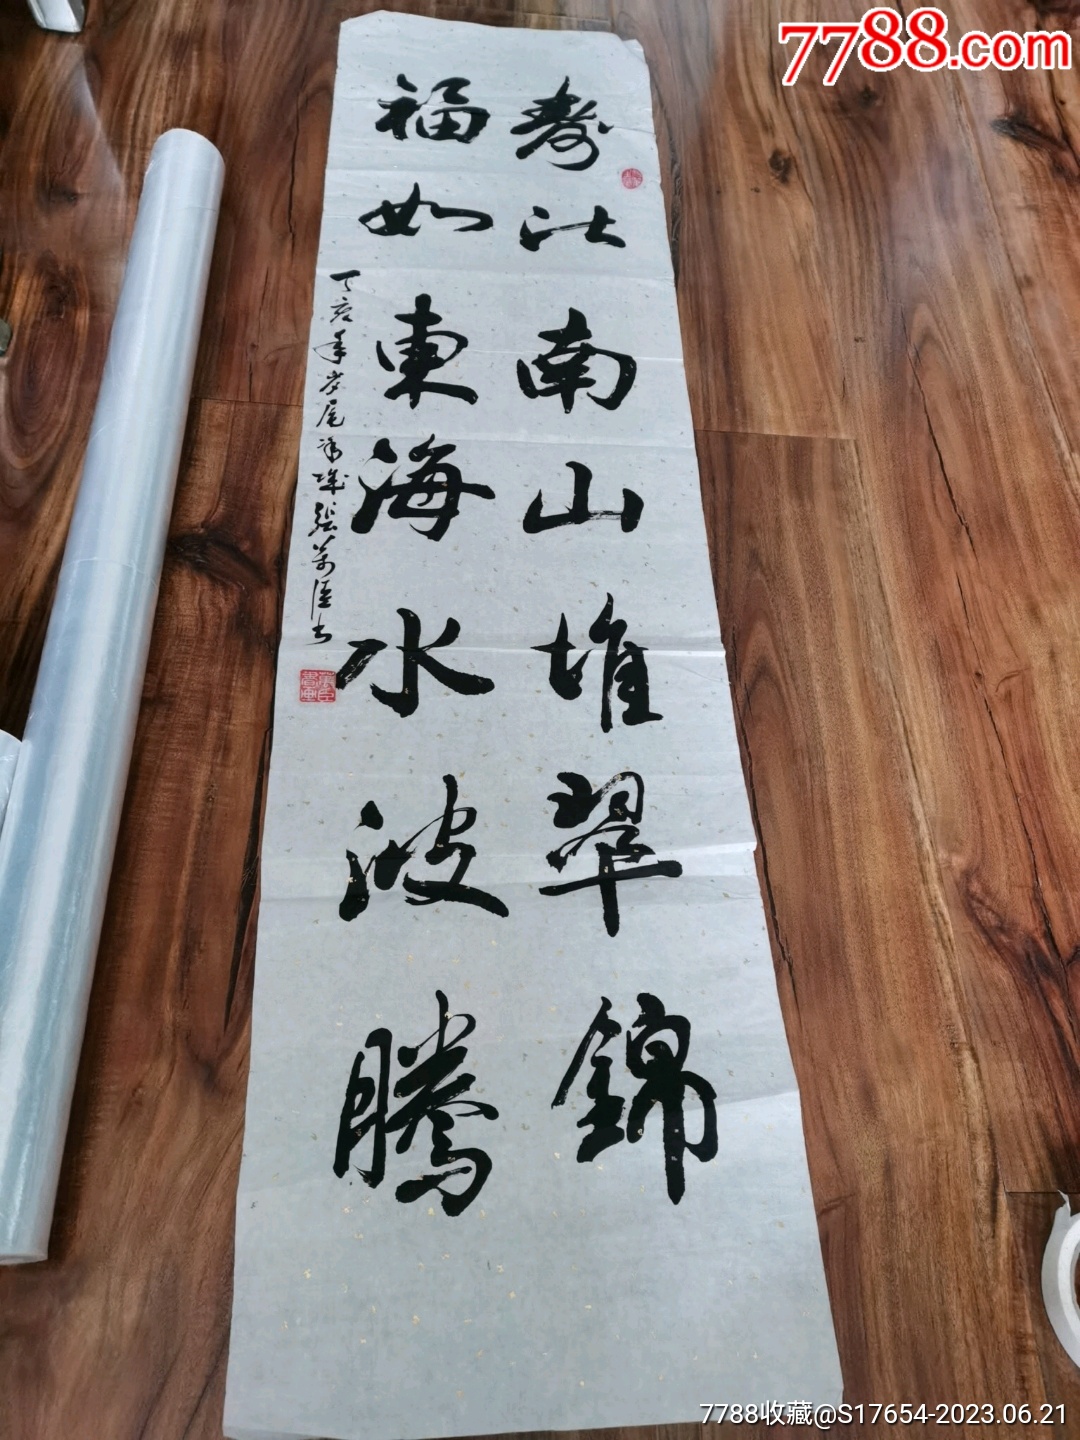 7788.com
壽比南山堆翠錦
福如東海水波騰
丁亥年岁尾張萬臣书
7788收藏@S17654-2023.06.21